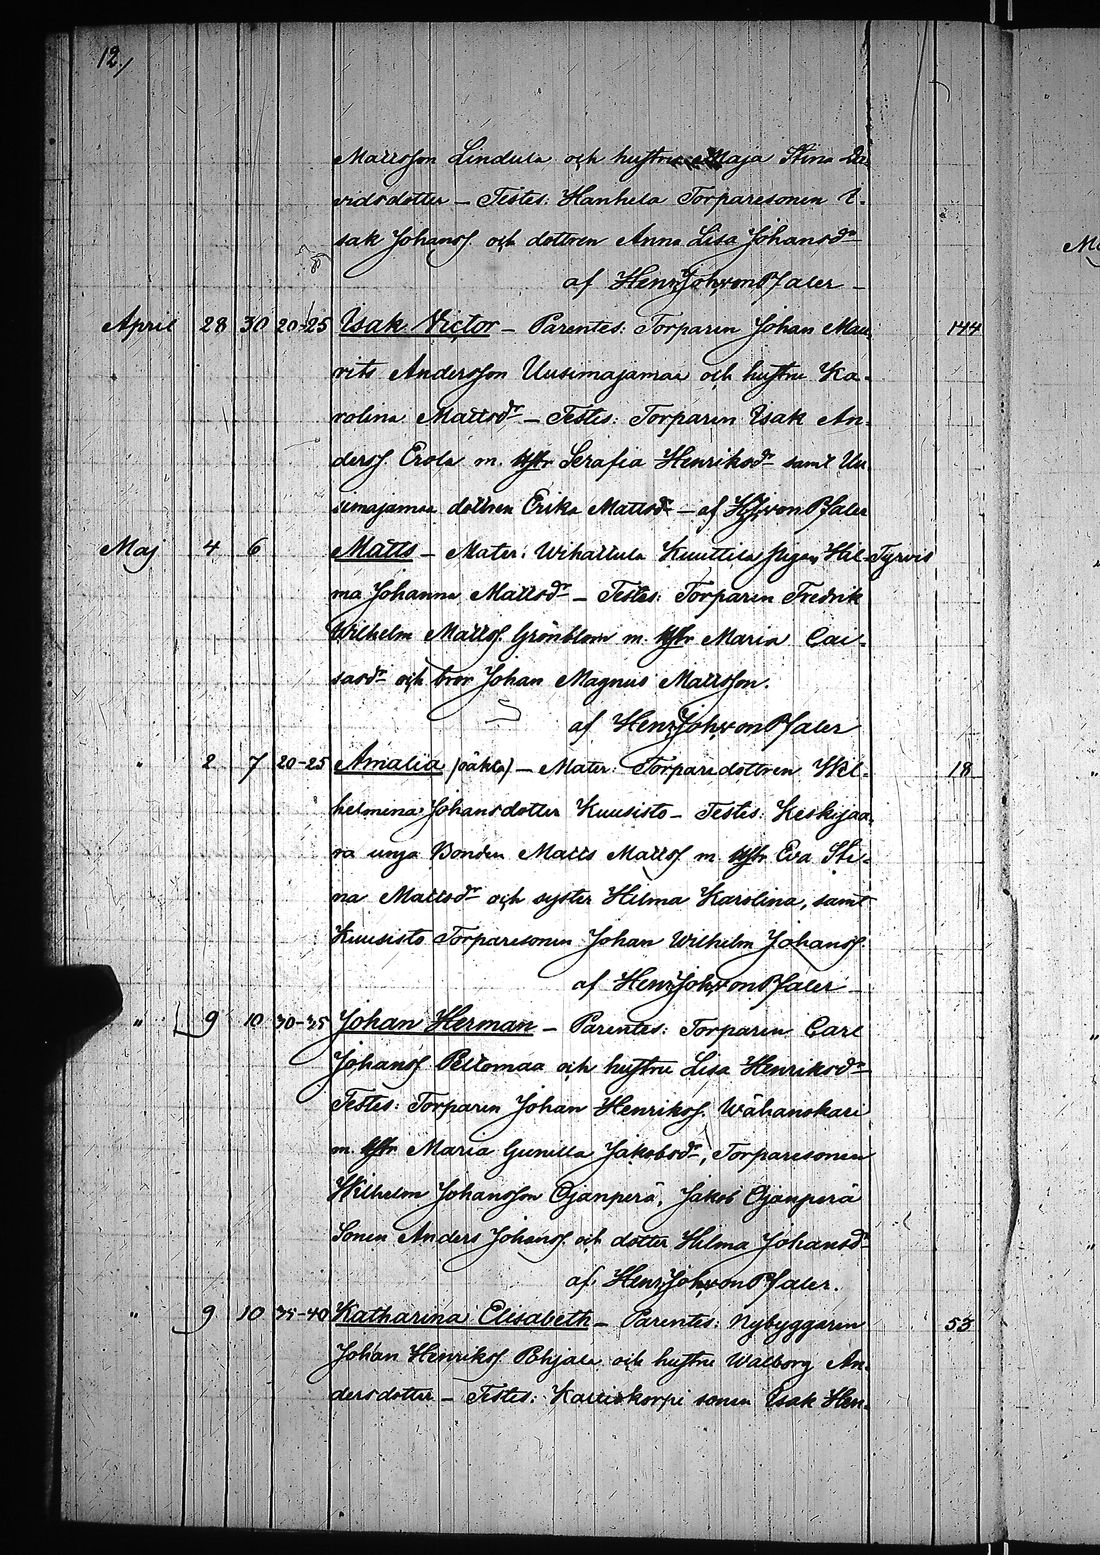 12./
Mattsson Lindula och hustru Maja Stina Da-
vidsdotter – Testes: Hanhela Torparesonen I-
sak Johanss. och dottren Anna Lisa Johansdr
af Henr. Joh. von Pfaler –
April 28 30 20-25 Isak Victor – Parentes: Torparen Johan Mau- 144
rits Andersson Uusimajamaa och hustru Ka-
rolina Mattsdr – Testes: Torparen Isak An-
derss. Erola m. hstr Serafia Henriksdr samt Uu-
simajamaa dottren Erika Mattsdr – af H.J. von Pfaler
Maj 4 6 Matts – Mater: Wihattula Kuuttila pigan Hil- Tyrvis
ma Johanna Mattsdr – Testes: Torparen Fredrik
Wilhelm Matts. Grönblom m. hstr Maria Cai-
sasdr och bror Johan Magnus Mattsson.
af Henr. Joh. von Pfaler
" 2 7 20-25 Amalia (oäkta) – Mater: Torparedottren Wil- 18
helmina Johansdotter Kuusisto – Testes: Keskijaa-
ra unga Bonden Matts Mattss. m. hstr Eva Sti-
na Mattsdr och syster Hilma Karolina, samt
Kuusisto Torparesonen Johan Wilhelm Johanss.
af Henr. Joh. von Pfaler –
" 9 10 30-35 Johan Herman – Parentes: Torparen Carl
Johanss. Peltomaa och hustru Lisa Henriksdr
Testes: Torparen Johan Henrikss. Wähänskari
m. hstr Maria Gunilla Jakobsdr, Torparesonen
Wilhelm Johansson Ojanperä, Jakob Ojanperä
Sonen Anders Johanss. och dotter Hilma Johansdr
af Henr. Joh. von Pfaler.
" 9 10 35-40 Katharina Elisabeth – Parentes: Nybyggaren 53
Johan Henrikss. Pohjala och hustru Walborg An-
dersdotter – Testes: Kalliokorpi sonen Isak Hen-